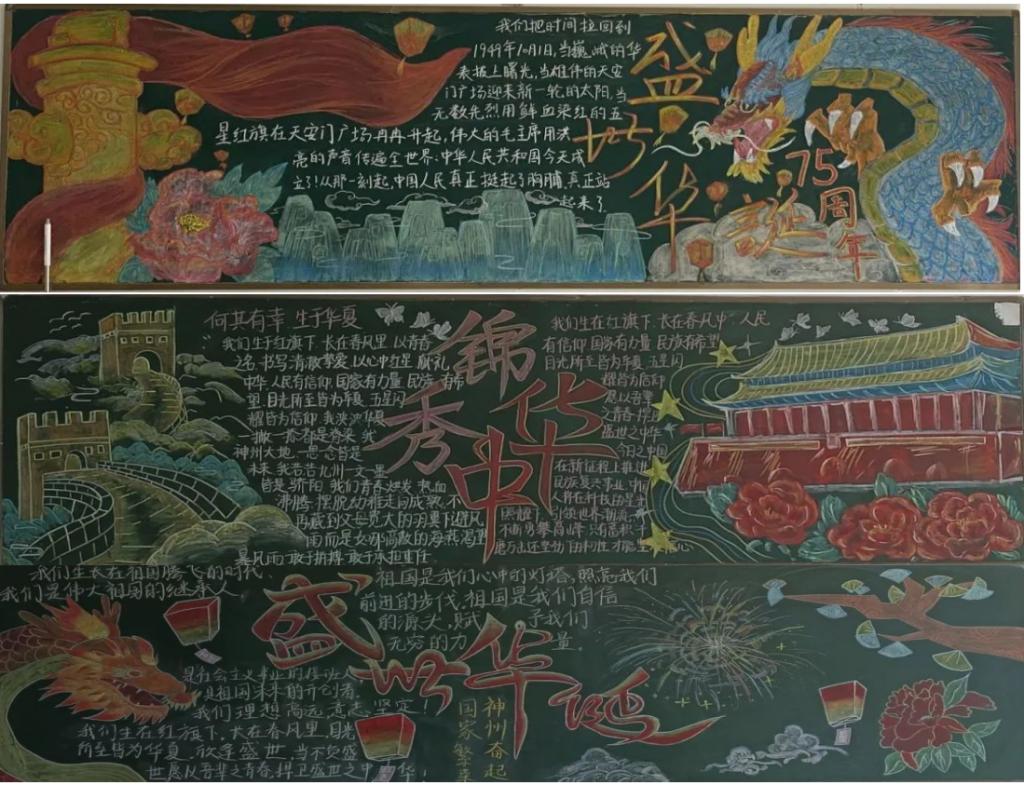 我们把时间拉回到
1949年10月1日,当巍峨的华
表披上曙光,当雄伟的天安
门广场迎来新一轮的太阳,当
无数先烈用鲜血染红的五
星红旗在天安门广场冉冉升起,伟大的毛主席用洪
亮的声音传遍全世界:中华人民共和国今天成
立了!从那一刻起,中国人民真正挺起了胸脯,真正站
起来了
盛世华诞
75周年
何其有幸 生于华夏
"我们生于红旗下,长在春风里 以青春
之名 书写清澈挚爱 以心中红星 献礼
中华 人民有信仰 国家有力量 民族有希
望 目光所至皆为华夏 五星闪
耀皆为信仰 我泱泱华夏
一撇一捺都是脊梁 我
神州大地 一思一念皆是
未来 我浩浩九州一文一墨
皆是骄阳 我们青春焕发 热血
沸腾 摆脱幼稚走向成熟 不
暴风雨 敢于拼搏 敢于承担责任
锦绣中华
我们生在红旗下,长在春风中,人民
有信仰 国家有力量 民族有希望
目光所至皆为华夏 五星闪
耀皆为信仰
愿以吾辈
之青春 捍卫
盛世之中华
今日之中国
在新征程上推进
民族复兴事业 中国
我们生长在祖国腾飞的时代,
我们是伟大祖国的继承人
是社会主义事业的接班人
是祖国未来的开创者.
我们理想高远,意志坚定!
我们生在红旗下,长在春风里,目光
所至皆为华夏 欣逢盛世 当不负盛
世愿以吾辈之青春,捍卫盛世之中华!
盛世华诞
祖国是我们心中的灯塔,照亮我们
前进的步伐,祖国是我们自信
的源头,赋予我们
无穷的力量.
神州奋起
国家繁荣